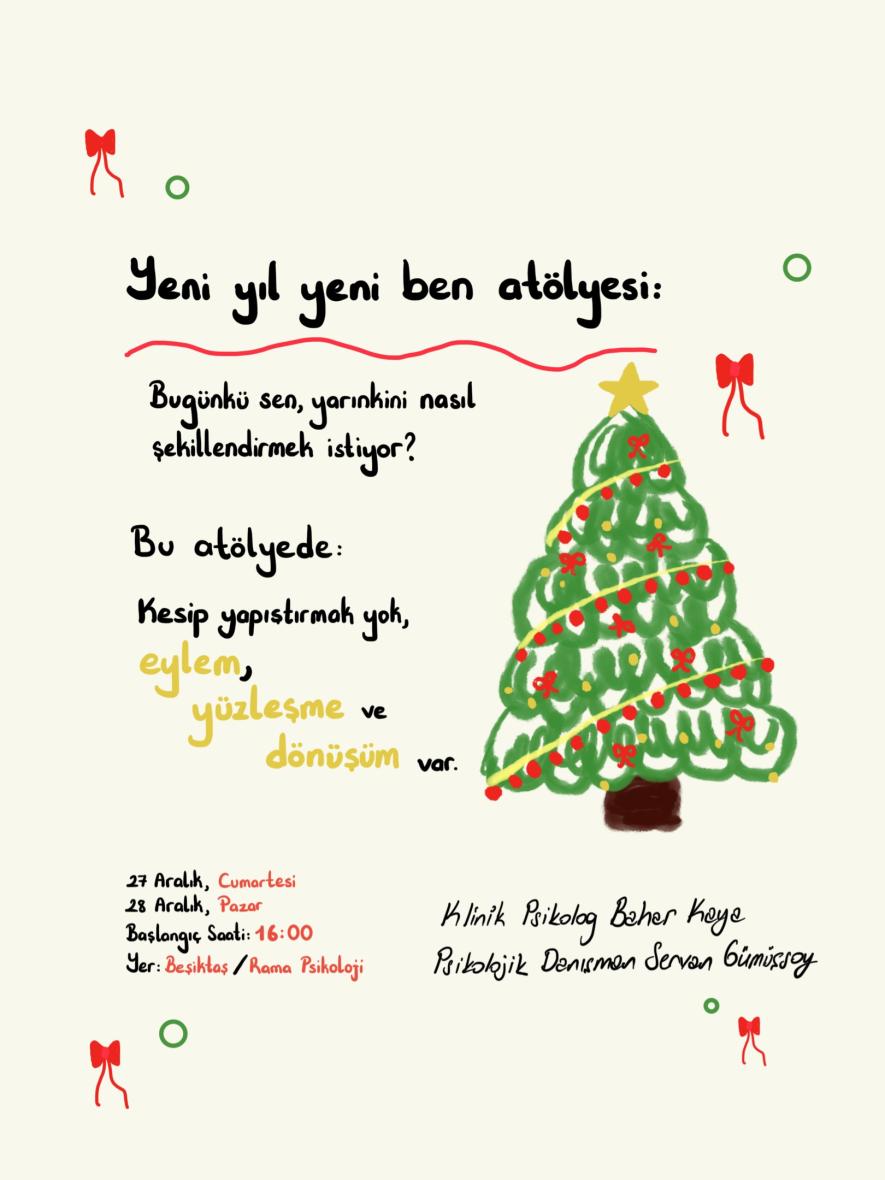 Yeni yıl yeni ben atölyesi:
Bugünkü sen, yarınkini nasıl
şekillendirmek istiyor?
Bu atölyede:
Kesip yapıştırmak yok,
eylem,
yüzleşme ve
dönüşüm var.
27 Aralık, Cumartesi
28 Aralık, Pazar
Başlangıç Saati: 16:00
Yer: Beşiktaş / Rama Psikoloji
Klinik Psikolog Bahar Kaya
Psikolojik Danışman Servan Gümüşsoy